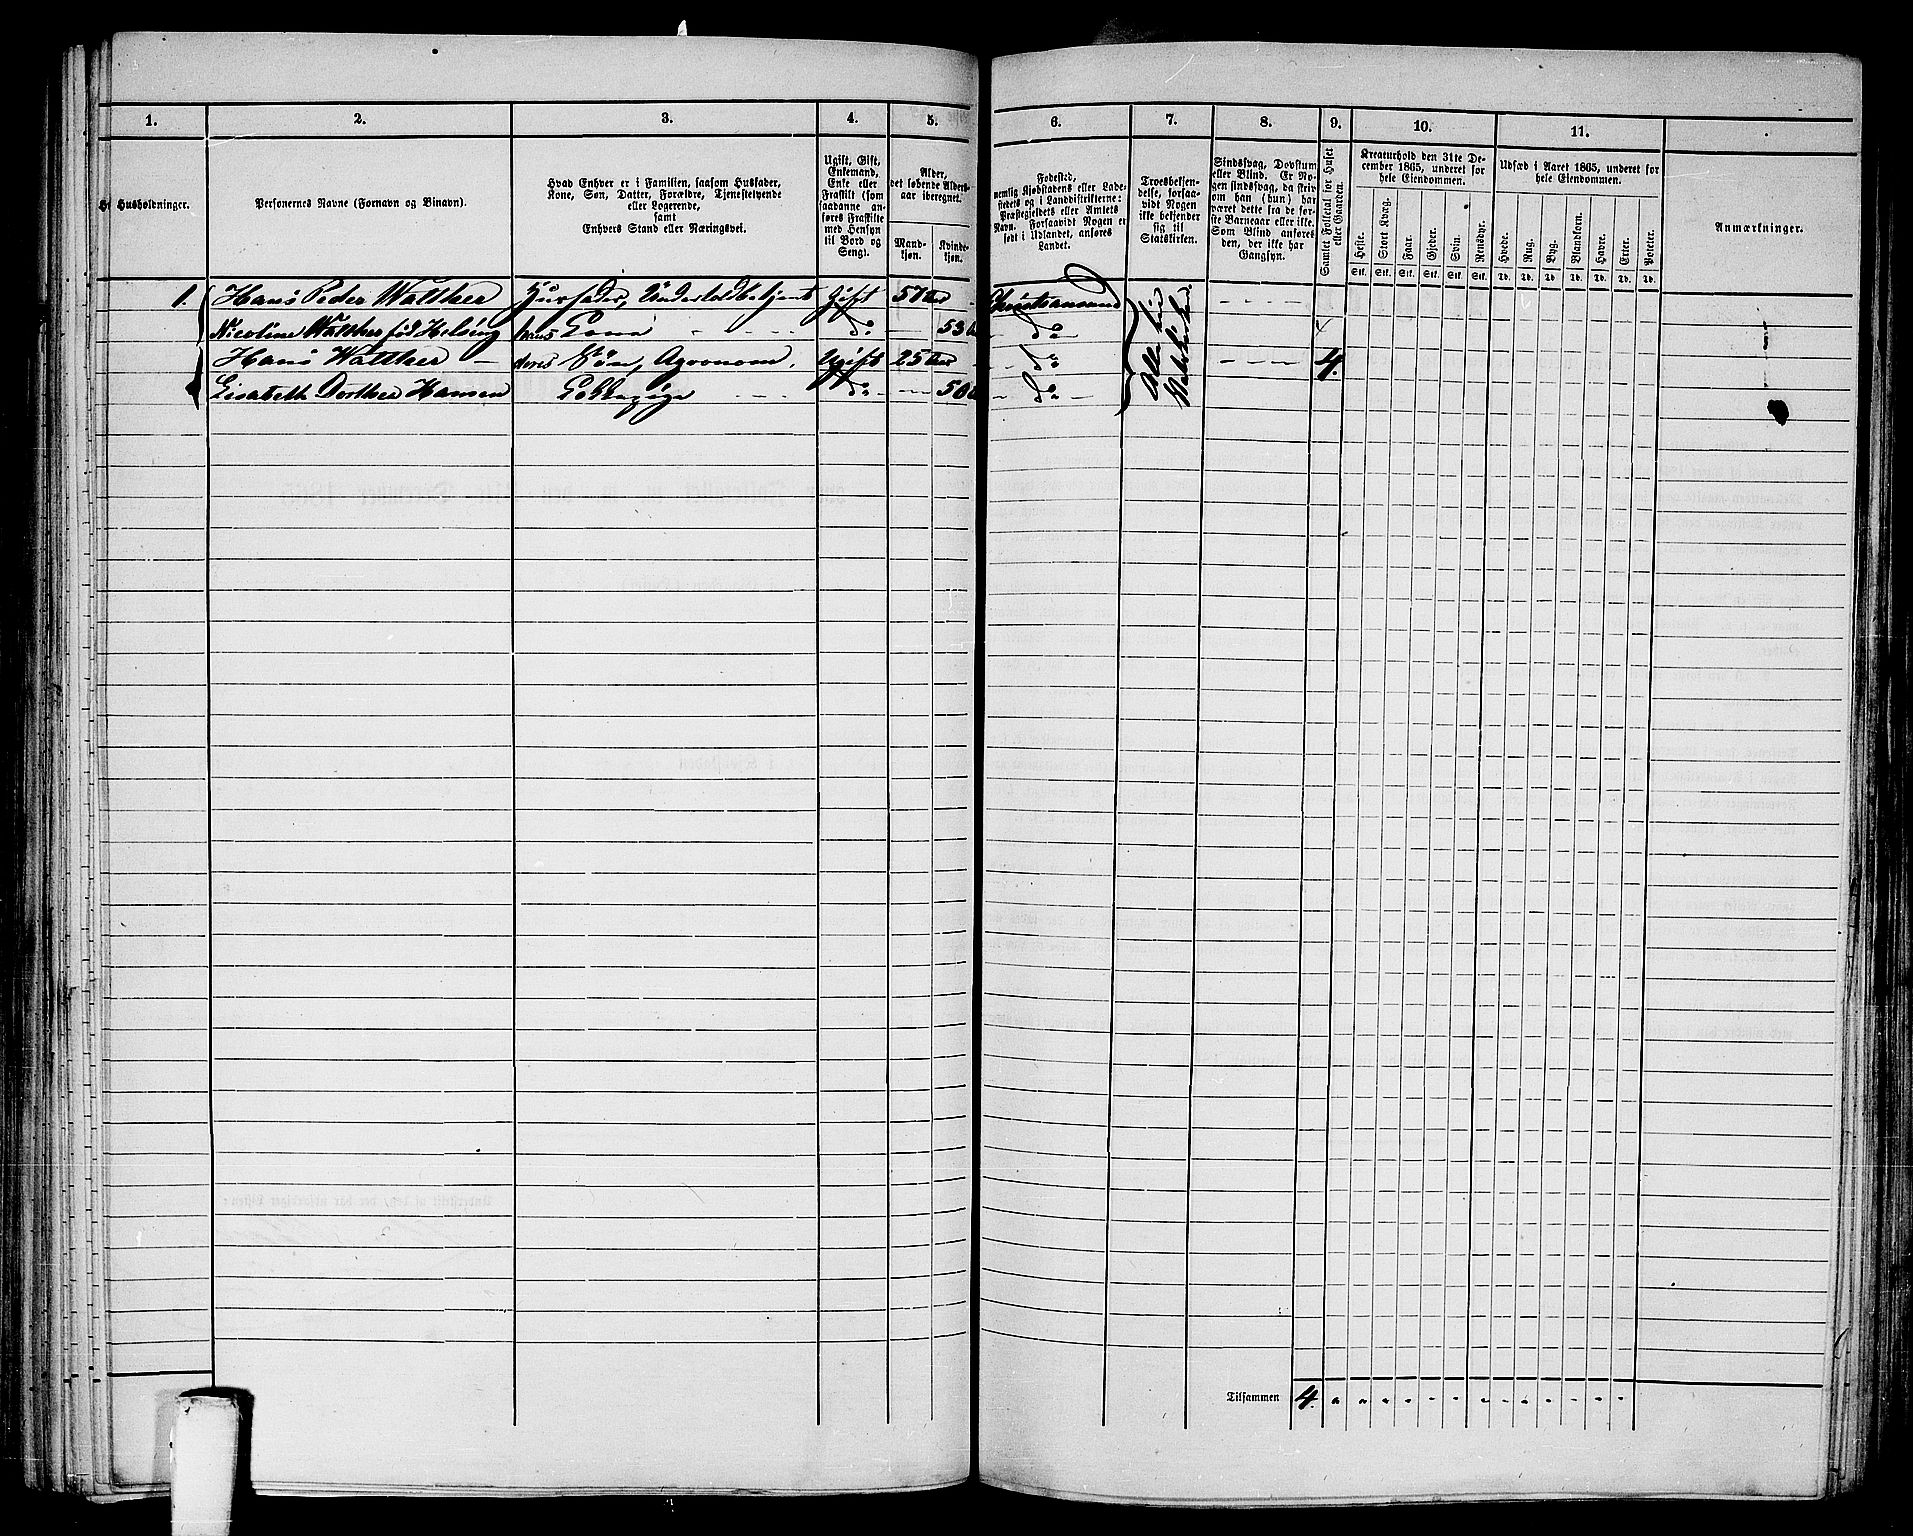 1. 2. 3. 4. 5. 6. 7. 8. 9. 10. 11.
Husholdninger.
Personernes Navne (Fornavn og Binavn).
Hvad Enhver er i Familien, saasom Husfader,
Kone, Søn, Datter, Forældre, Tjenestetyende
eller Logerende,
samt
Enhvers Stand eller Næringsvei.
Ugift, Gift,
Enkemand,
Enke eller
Fraskilt (som
saadanne an-
føres Fraskilte
med Hensyn
til Bord og
Seng).
Alder,
det løbende Alders-
aar iberegnet.
Mand-
kjøn.
Kvinde-
kjøn.
Fødested,
nemlig Kjøbstadens eller Lade-
stedets og i Landdistrikterne:
Præstegjeldets eller Amtets
Navn. Forsaavidt Nogen er
født i Udlandet, anføres
Landet.
Troesbekjen-
delse, forsaa-
vidt Nogen
ikke bekjender
sig til
Statskirken.
Sindssvag, Døvstum
eller Blind. Er No-
gen sindssvag, da skriv
om han (hun) har
været dette fra de før-
ste Barneaar eller ikke.
Som Blind anføres
den, der ikke har
Gangsyn.
Samlet Folketal for Huset
eller Gaarden.
Kreaturhold den 31te De-
cember 1865, underet for
hele Eiendommen.
Heste. Stort Kvæg. Faar. Gjeder. Svin. Rensdyr.
Stk. Stk. Stk. Stk. Stk. Stk.
Udsæd i Aaret 1865, underet for
hele Eiendommen.
Hvede. Rug. Byg. Blandkorn. Havre. Erter. Poteter.
Td. Td. Td. Td. Td. Td. Td.
Anmærkninger.
1. Hans Peder Walther Husfader, Undertoldbetjent Gift 57 Christiansund
Nicoline Walther fød Helsing hans Kone do 53 do
Hans Walther deres Søn, Agronom, Ugift 25 do 4.
Elisabeth Dorthea Hansen Kokkepige do 50 do
Tilsammen 4